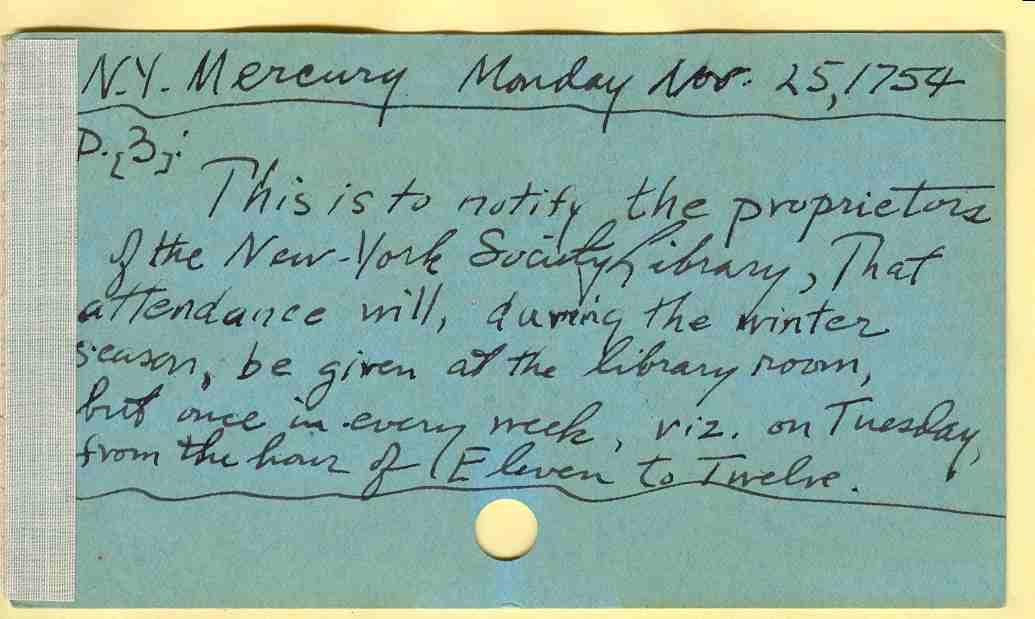 N.Y. Mercury Monday Nov. 25, 1754
P. [3]:
This is to notify the proprietors
of the New-York Society Library, That
attendance will, during the winter
season, be given at the library room,
but once in every week, viz. on Tuesday,
from the hour of Eleven to Twelve.